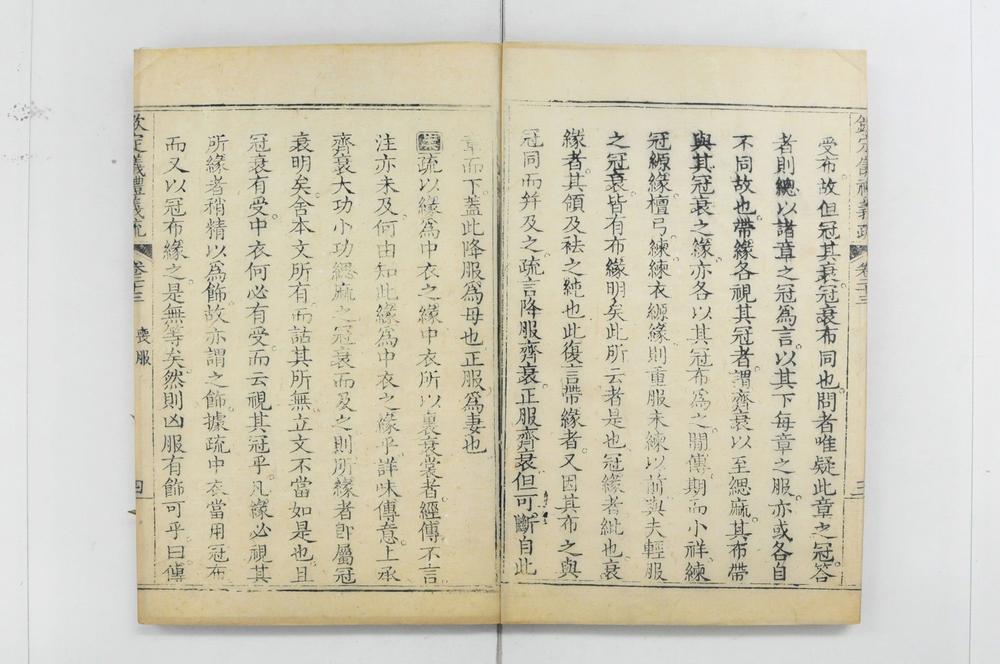 受布故但冠其衰冠衰布同也問者唯疑此章之冠答
者則總以諸章之冠爲言以其下每章之服亦或各自
不同故也帶緣各視其冠者謂齊衰以至緦麻其布帶
與其冠衰之緣亦各以其冠布爲之間傳期而小祥練
冠縓緣檀弓練練衣縓緣則重服未練以前與夫輕服
之冠衰皆有布緣明矣此所云者是也冠緣者紕也衰
緣者其領及袪之純也此復言帶緣者又因其布之與
冠同而幷及之疏言降服齊衰正服齊衰但可斷自此
章而下蓋此降服爲母也正服爲妻也
案疏以緣爲中衣之緣中衣所以裏衰裳者經傳不言
注亦未及何由知此緣爲中衣之緣乎詳味傳意上承
齊衰大功小功緦麻之冠衰而及之則所緣者卽屬冠
衰明矣舍本文所有而詁其所無立文不當如是也且
冠衰有受中衣何必有受而云視其冠乎凡緣必視其
所緣者稍精以爲飾故亦謂之飾據疏中衣當用冠布
而又以冠布緣之是無等矣然則凶服有飾可乎曰傳
欽定儀禮義疏
卷二十三
喪服
四